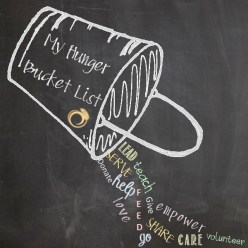 My Hunger
Bucket List
LEAD
SERVE
teach
Donate
help
FEED
Give
love
empower
SHARE
go
CARE
volunteer